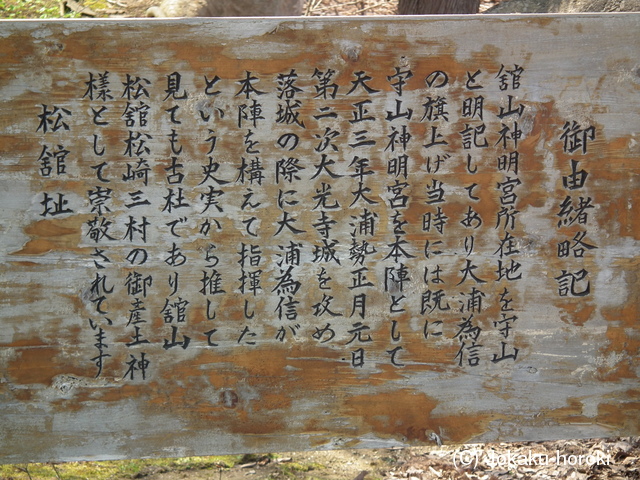 御由緒略記
舘山神明宮所在地を守山
と明記してあり大浦為信
の旗上げ当時には既に
守山神明宮を本陣として
天正三年大浦勢正月元日
第二次大光寺城を攻め
落城の際に大浦為信が
本陣を構えて指揮した
という史実から推して
見ても古社であり舘山
松舘松崎三村の御産土神
様として崇敬されています
松舘址
(C) Jokaku-horoki